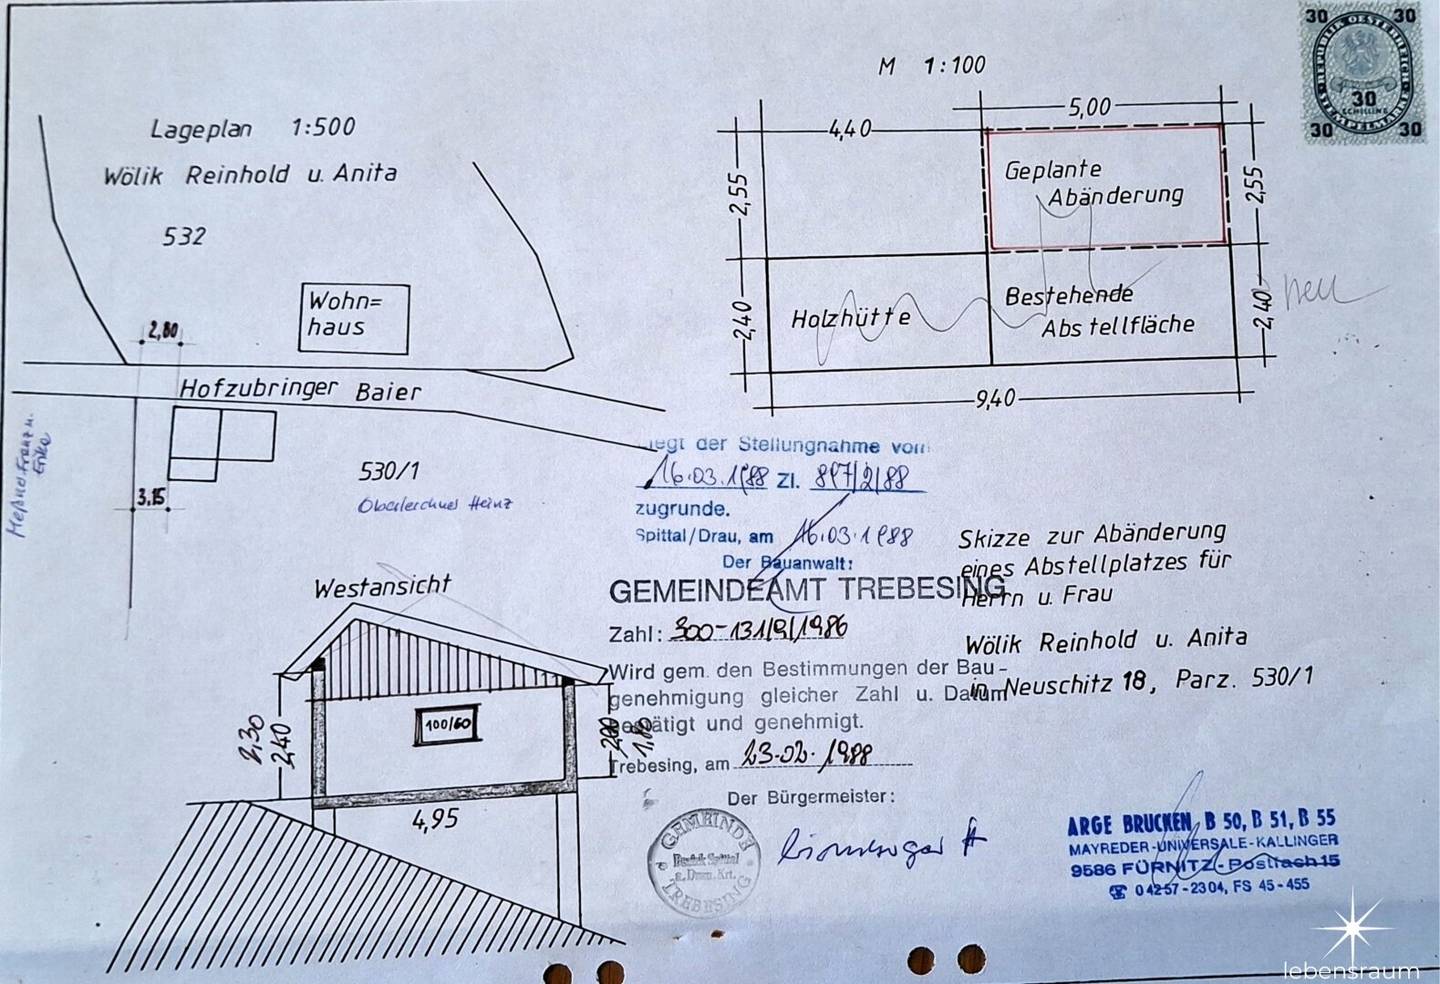 Lageplan 1:500
Wölik Reinhold u. Anita
532
Wohn=
haus
2,80
Hofzubringer Baier
530/1
Oberlerchner Heinz
3,15
Meßner Franz u.
Erika
M 1:100
5,00
4,40
2,55
2,55
Geplante
Abänderung
2,40
Holzhütte
Bestehende
Abstellfläche
2,40
neu
9,40
30 REPUBLIK OESTERREICH 30
30
SCHILLING
30 STEMPELMARKE 30
liegt der Stellungnahme vom
16.03.1988 Zl. 897/2/88
zugrunde.
Spittal/Drau, am 16.03.1988
Der Bauanwalt:
GEMEINDEAMT TREBESING
Zahl: 300-131/9/1986
Wird gem. den Bestimmungen der Bau-
genehmigung gleicher Zahl u. Datum
bestätigt und genehmigt.
Trebesing, am 23.02.1988
Der Bürgermeister:
GEMEINDE
Bezirk Spittal
a. Drau, Krt.
TREBESING
Skizze zur Abänderung
eines Abstellplatzes für
Herrn u. Frau
Wölik Reinhold u. Anita
in Neuschitz 18, Parz. 530/1
Westansicht
100/60
2,30
2,40
2,00
1,80
4,95
ARGE BRÜCKEN B 50, B 51, B 55
MAYREDER-UNIVERSALE-KALLINGER
9586 FÜRNITZ - Postfach 15
☎ 04257-2304, FS 45-455
lebensraum